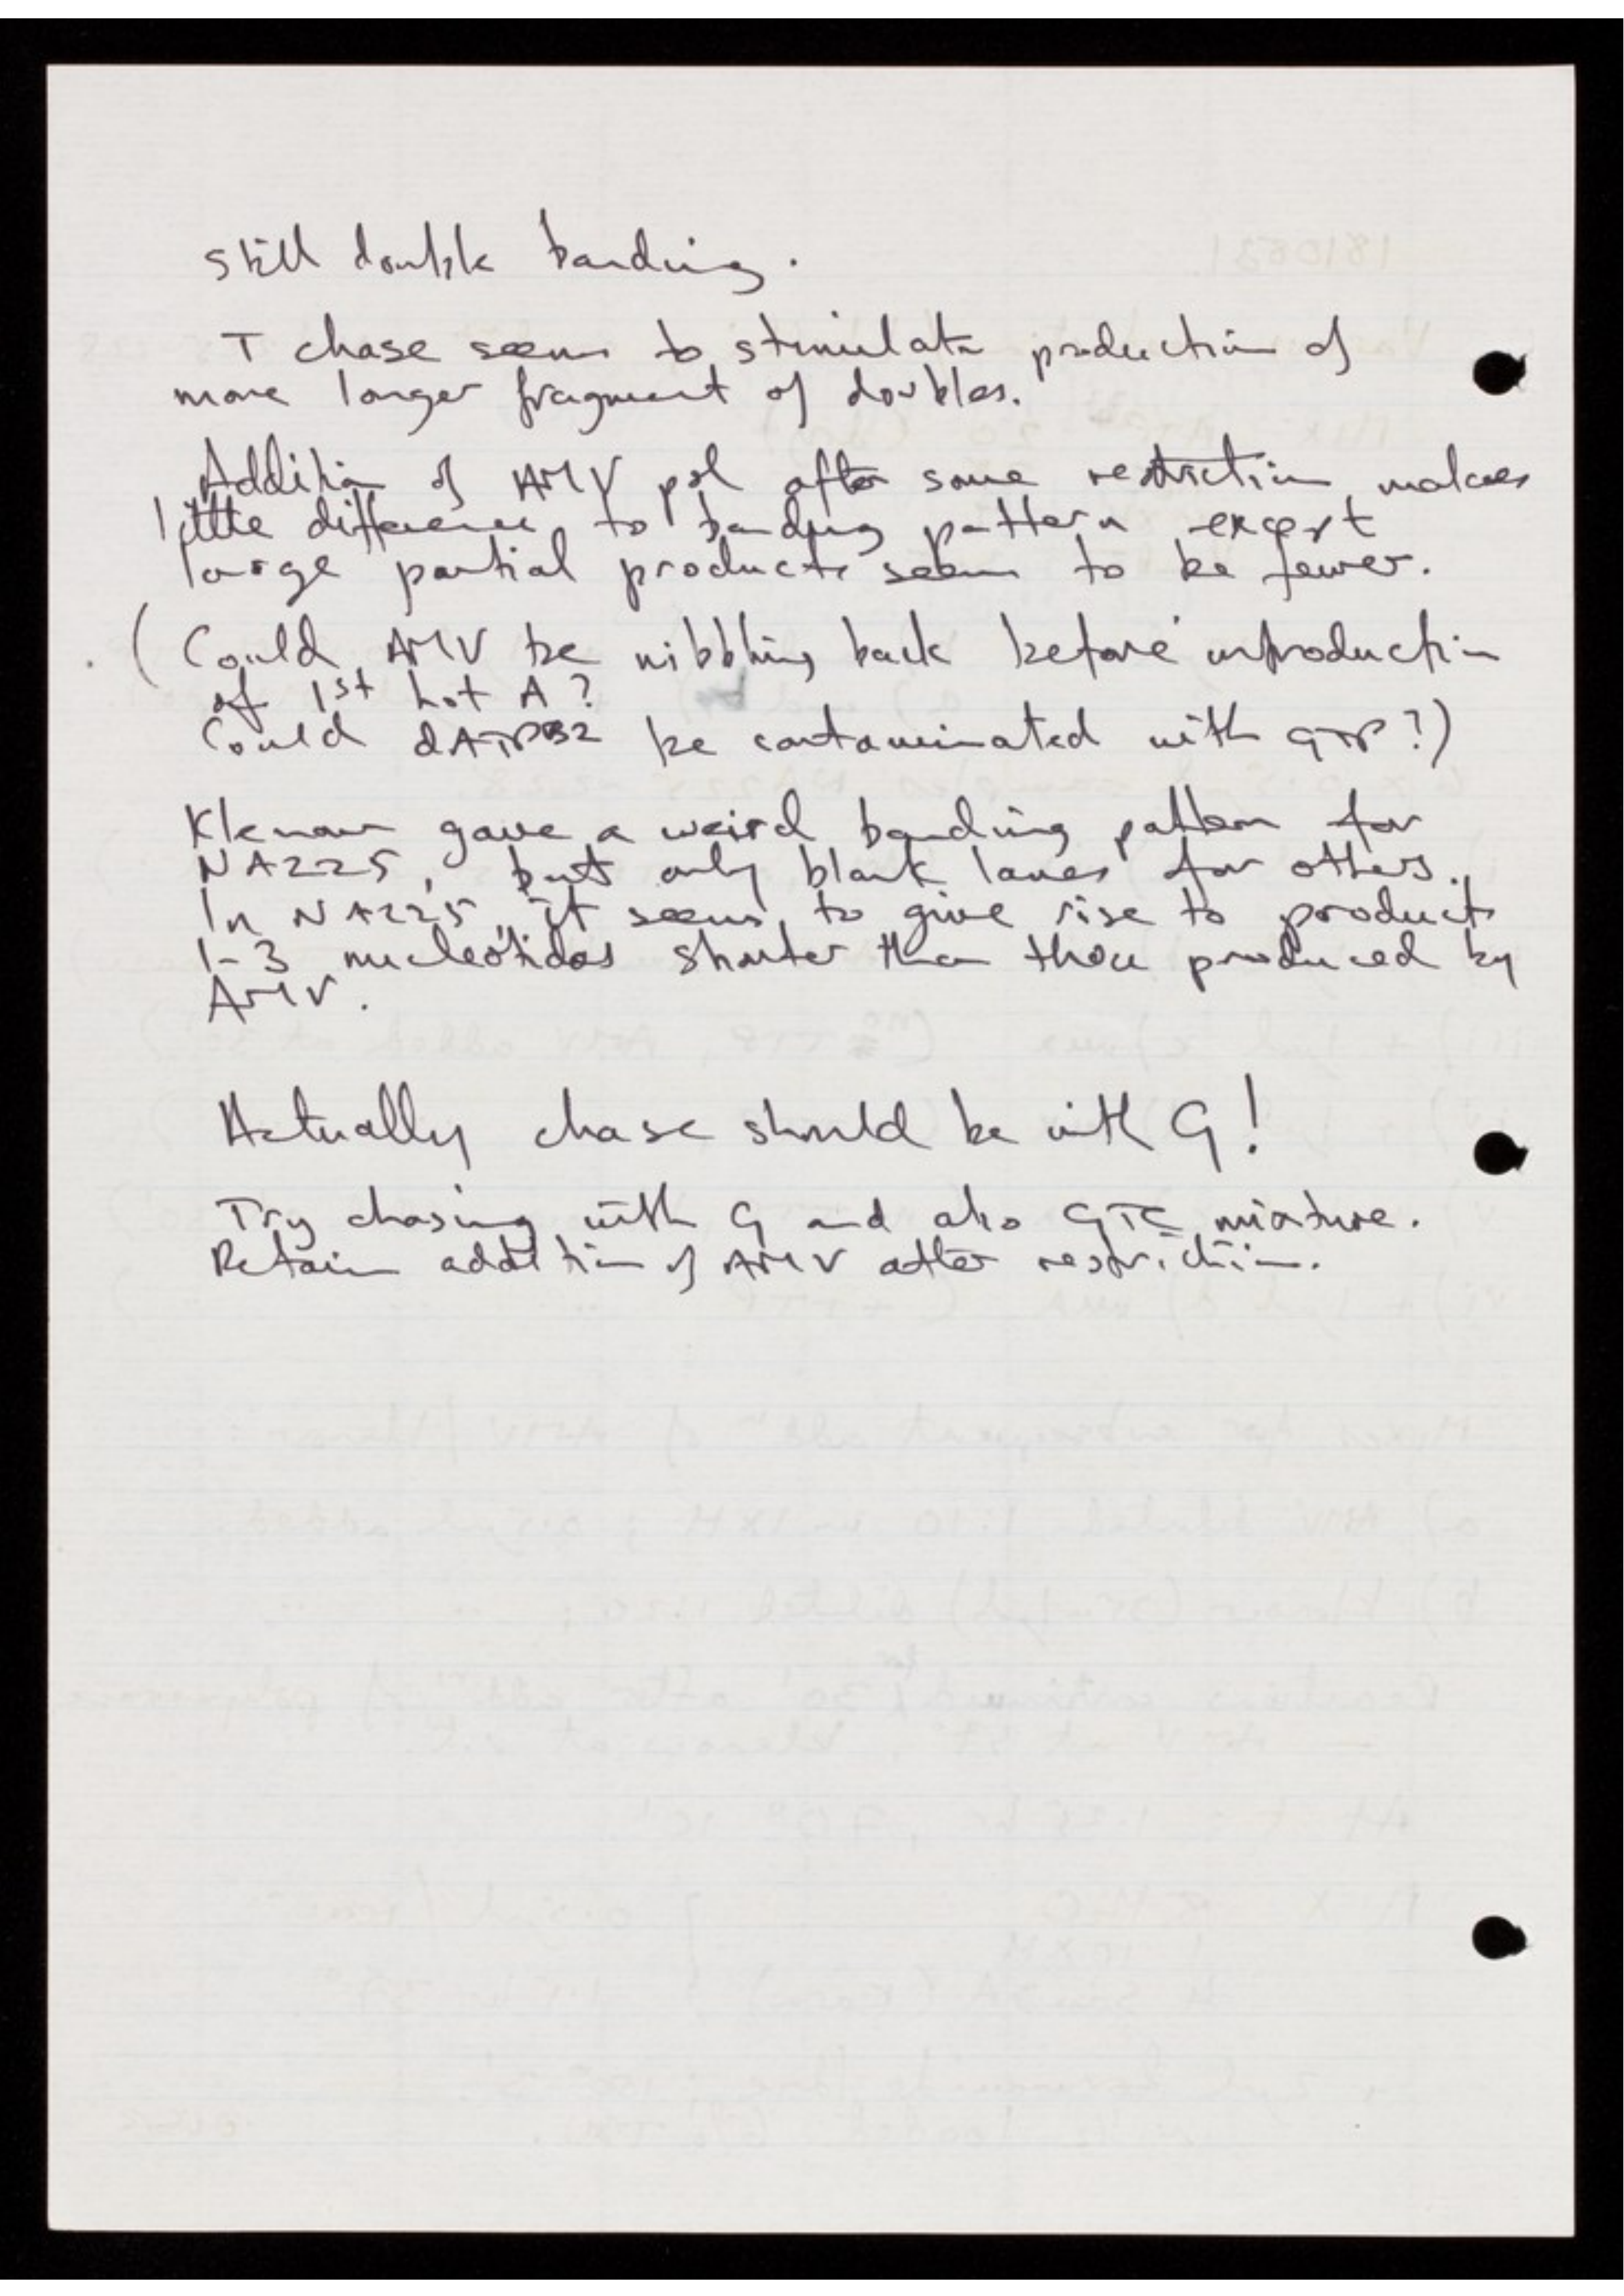 Still double banding.
T chase seems to stimulate production of
more longer fragment of doubles.
Addition of AMV pol after some restriction makes
little difference to banding pattern except
large partial products seem to be fewer.
(Could AMV be nibbling back before introduction
of 1st hot A?
Could dATP32 be contaminated with GTP?)
Klenow gave a weird banding pattern for
NA225, but only blank lanes for others.
In NA225, it seems to give rise to products
1-3 nucleotides shorter than those produced by
AMV.
Actually chase should be with G!
Try chasing with G and also GTC mixture.
Retain addition of AMV after restriction.